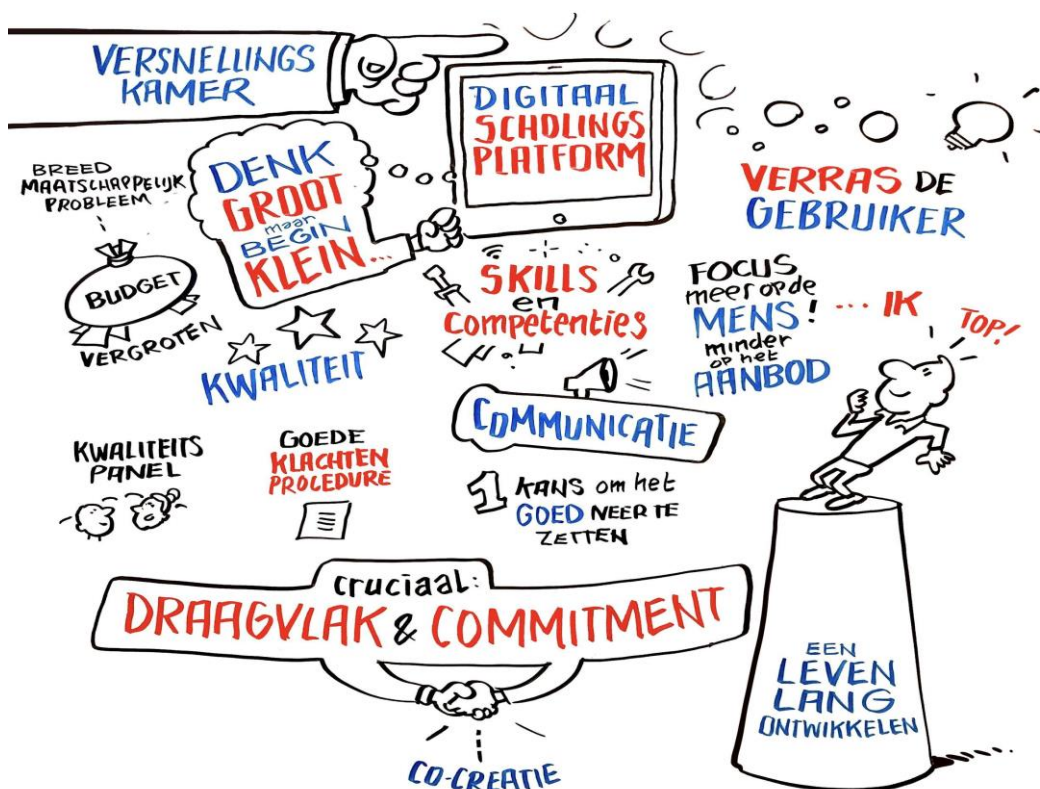 VERSNELLINGS
KAMER
DIGITAAL
SCHOLINGS
PLATFORM
BREED
MAATSCHAPPELIJK
PROBLEEM
BUDGET
VERGROTEN
DENK
GROOT
maar
BEGIN
KLEIN...
VERRAS DE
GEBRUIKER
SKILLS
en
Competenties
FOCUS
meer op de
MENS!
minder
op het
AANBOD
... IK
TOP!
KWALITEIT
COMMUNICATIE
KWALITEITS
PANEL
GOEDE
KLACHTEN
PROCEDURE
1 KANS om het
GOED NEER TE
ZETTEN
cruciaal:
DRAAGVLAK & COMMITMENT
CO-CREATIE
EEN
LEVEN
LANG
ONTWIKKELEN